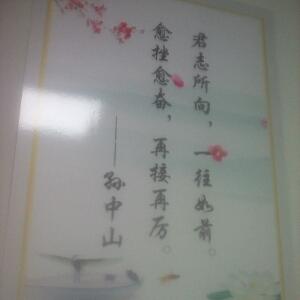 君志所向，一往如前。
愈挫愈奋，再接再厉。
——孙中山